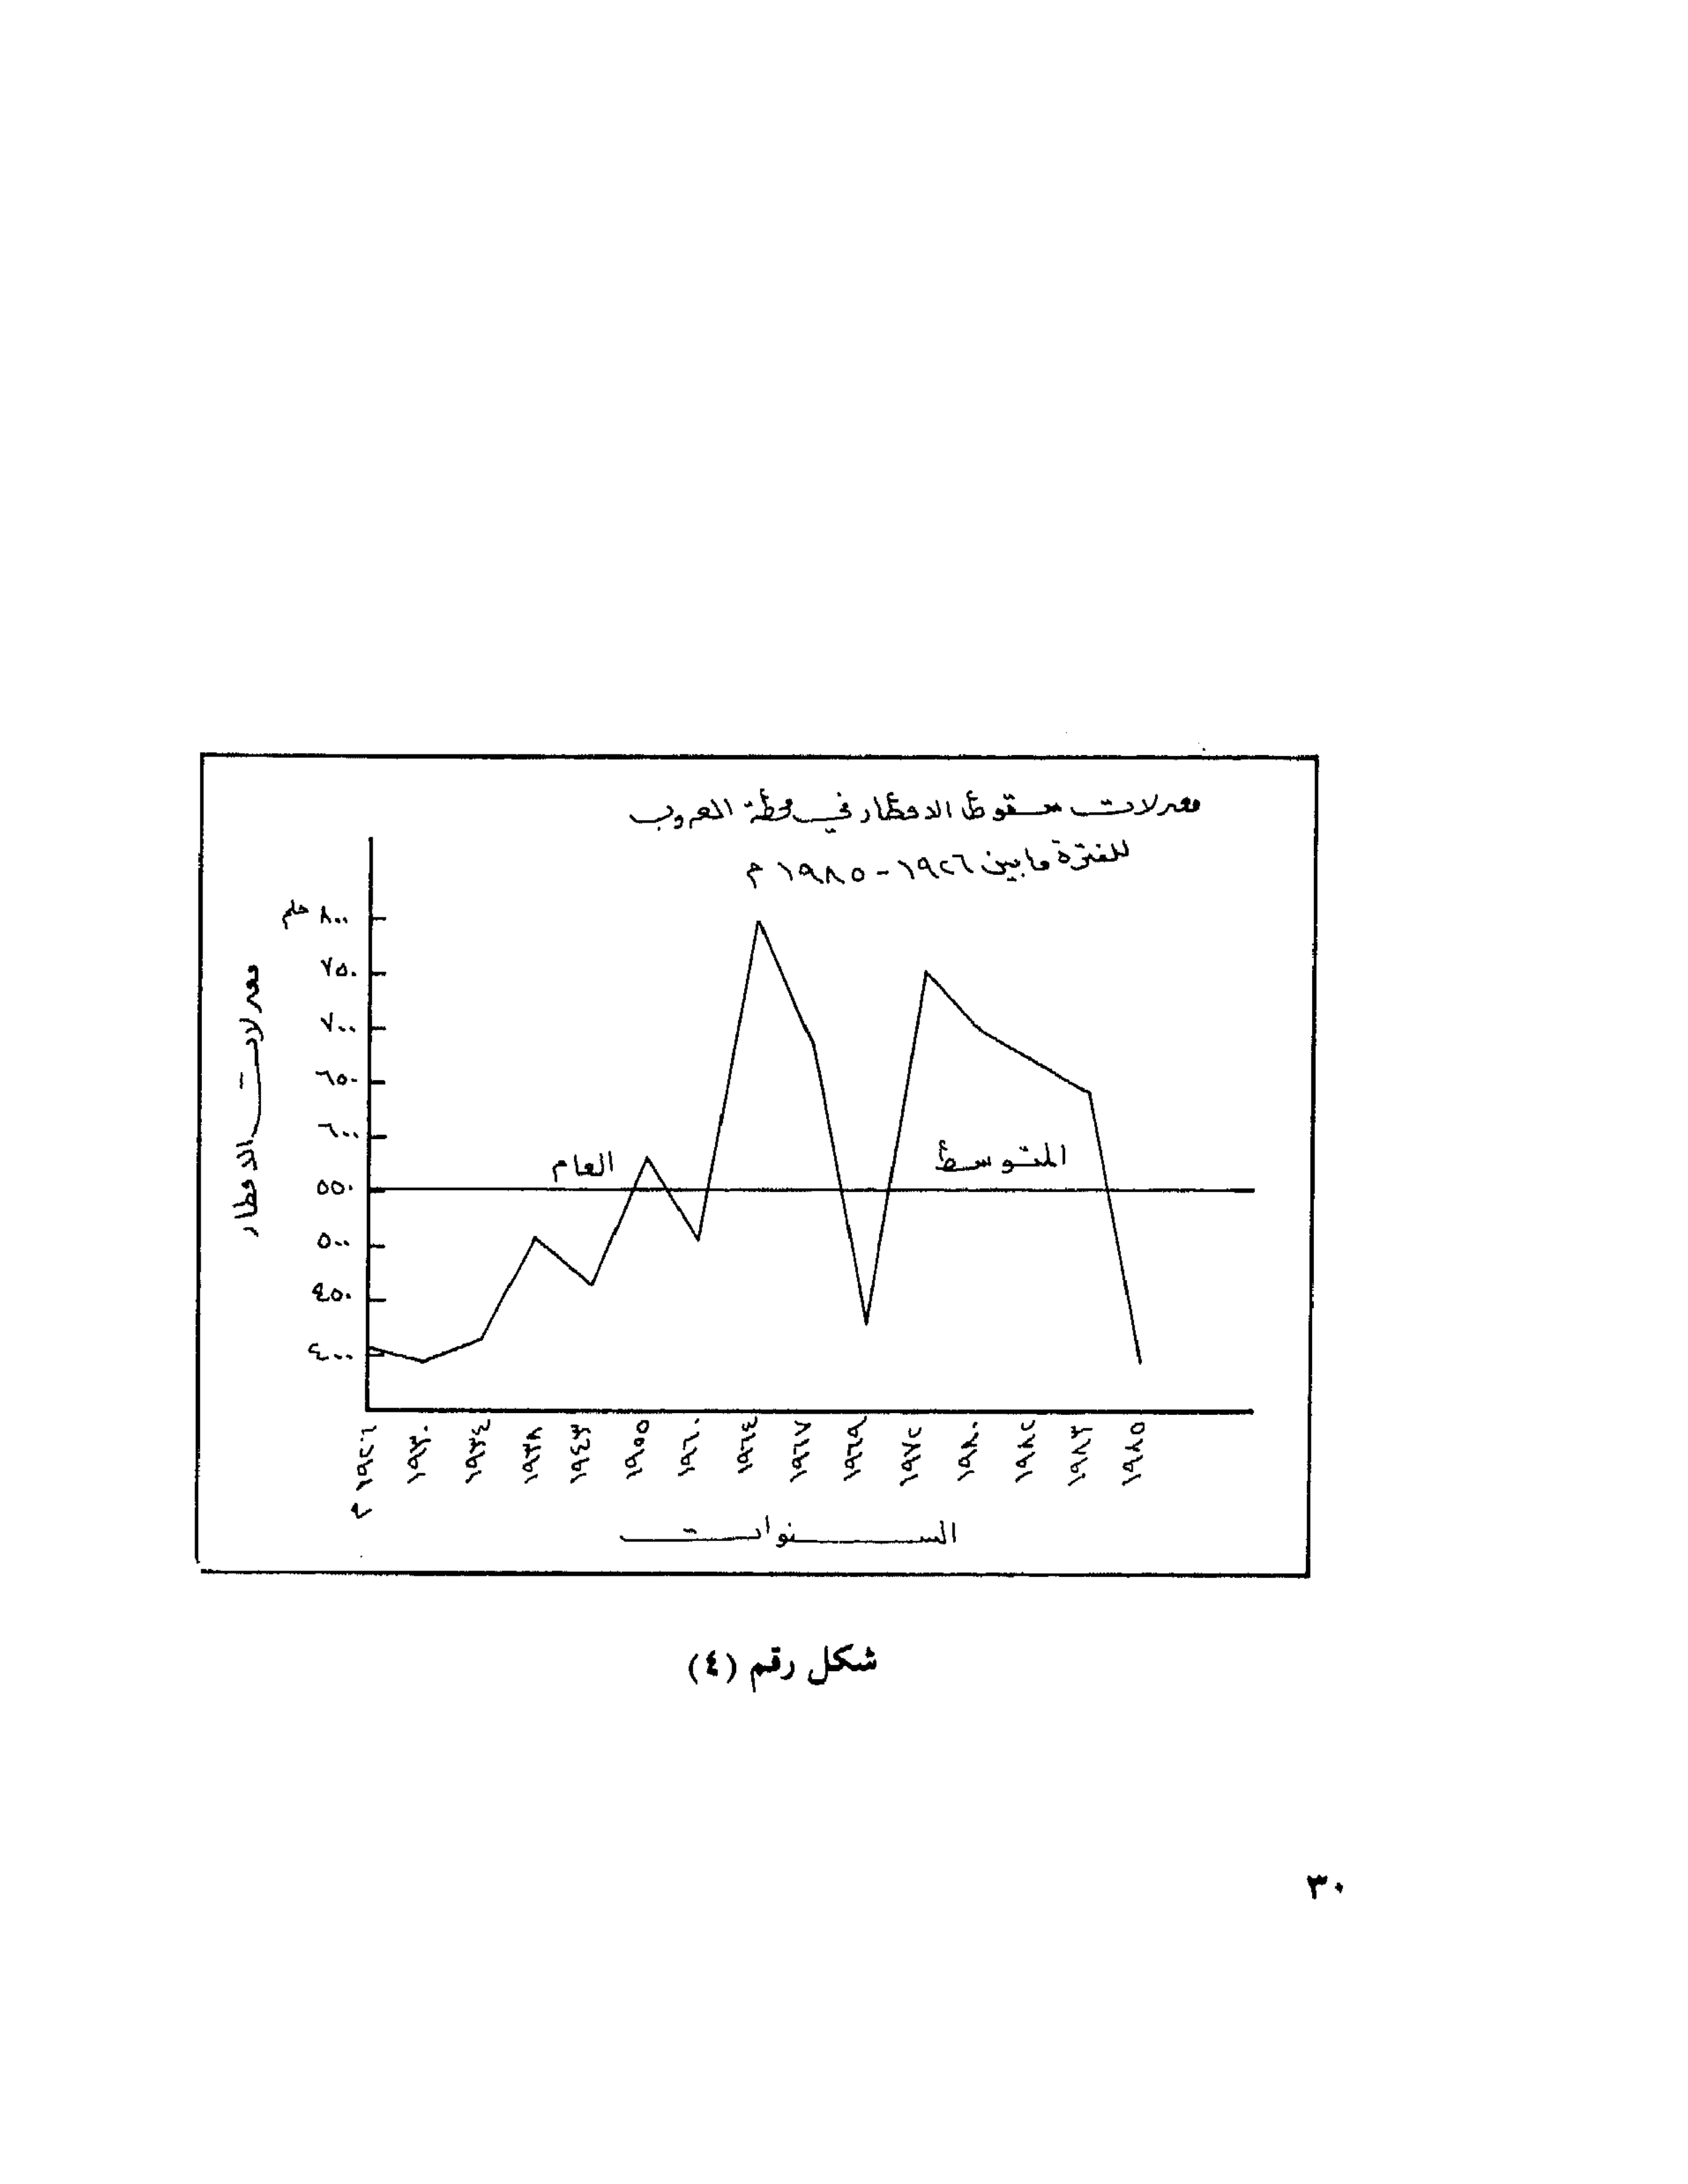 معدلات سقوط الامطار في محطة العروب
للفترة ما بين ١٩٢٦ - ١٩٨٥ م
٨٠٠ ملم
٧٥٠
٧٠٠
٦٥٠
٦٠٠
٥٥٠
٥٠٠
٤٥٠
٤٠٠
معدلات الامطار
المتوسط العام
١٩٢٦ م
١٩٣٠
١٩٣٤
١٩٣٨
١٩٤٣
١٩٥٥
١٩٦٠
١٩٦٤
١٩٦٧
١٩٦٩
١٩٧٢
١٩٨٠
١٩٨٢
١٩٨٣
١٩٨٥
السنوات
شكل رقم (٤)
٣٠